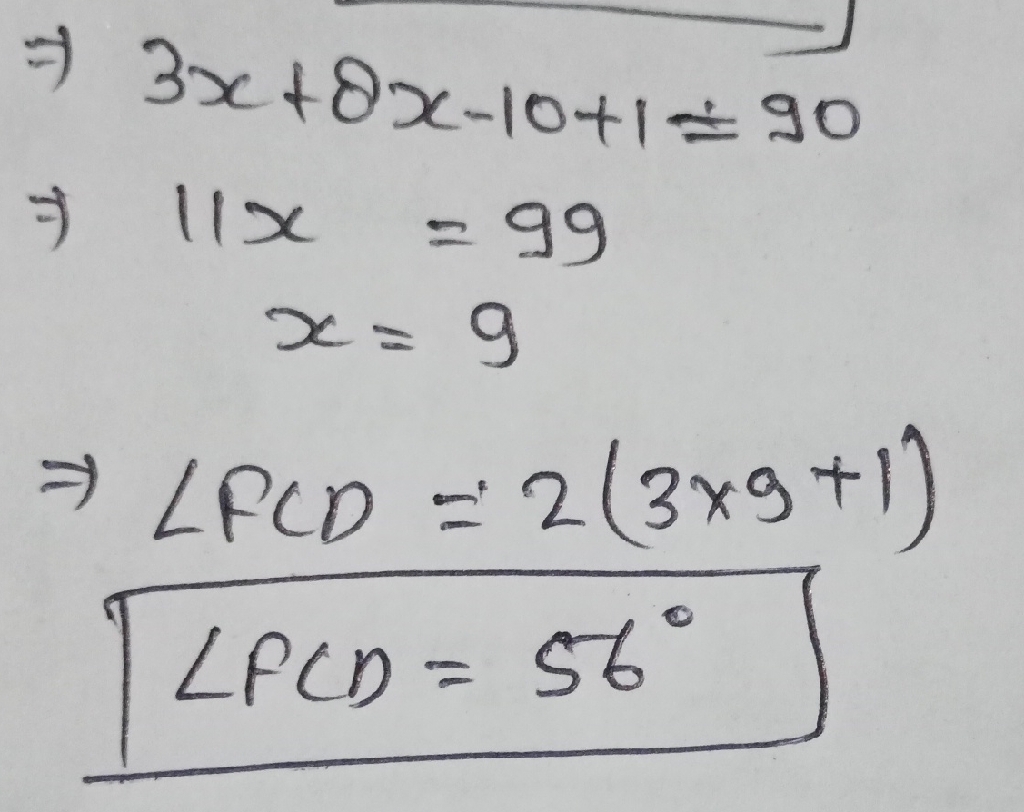 ⇒ 3x+8x-10+1=90
⇒ 11x = 99
x = 9
⇒ ∠PCD = 2(3×9+1)
∠PCD = 56°